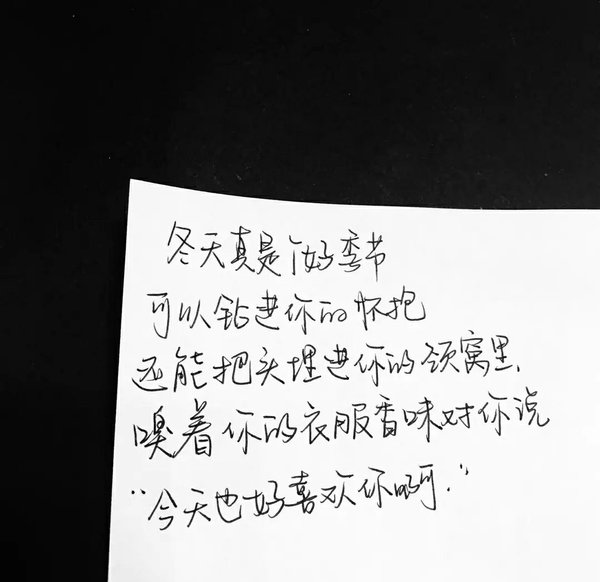 冬天真是个好季节
可以钻进你的怀抱
还能把头埋进你的颈窝里.
嗅着你的衣服香味对你说
“今天也好喜欢你啊.”